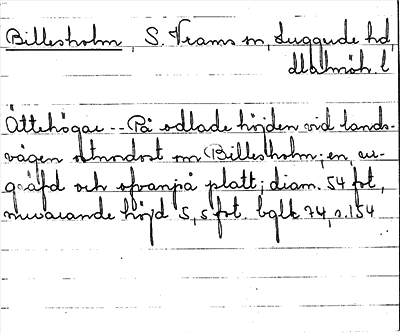 Billesholm, S. Vrams sn, Luggude hd,
Malmöh. l
Ättehögar -- På odlade höjden vid lands-
vägen utmdost om Billesholm; en, ut-
gräfd och ofvanpå platt; diam. 54 fot,
nuvarande höjd 5,5 fot. bglk 74, s. 154